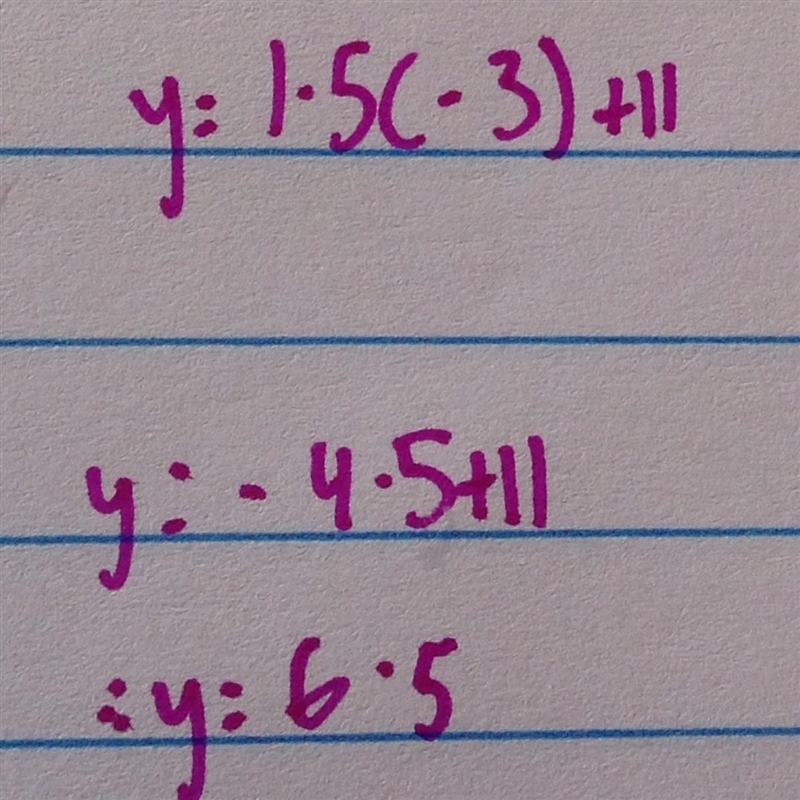 y = 1·5(-3) +11
y = -4·5+11
∴ y = 6·5